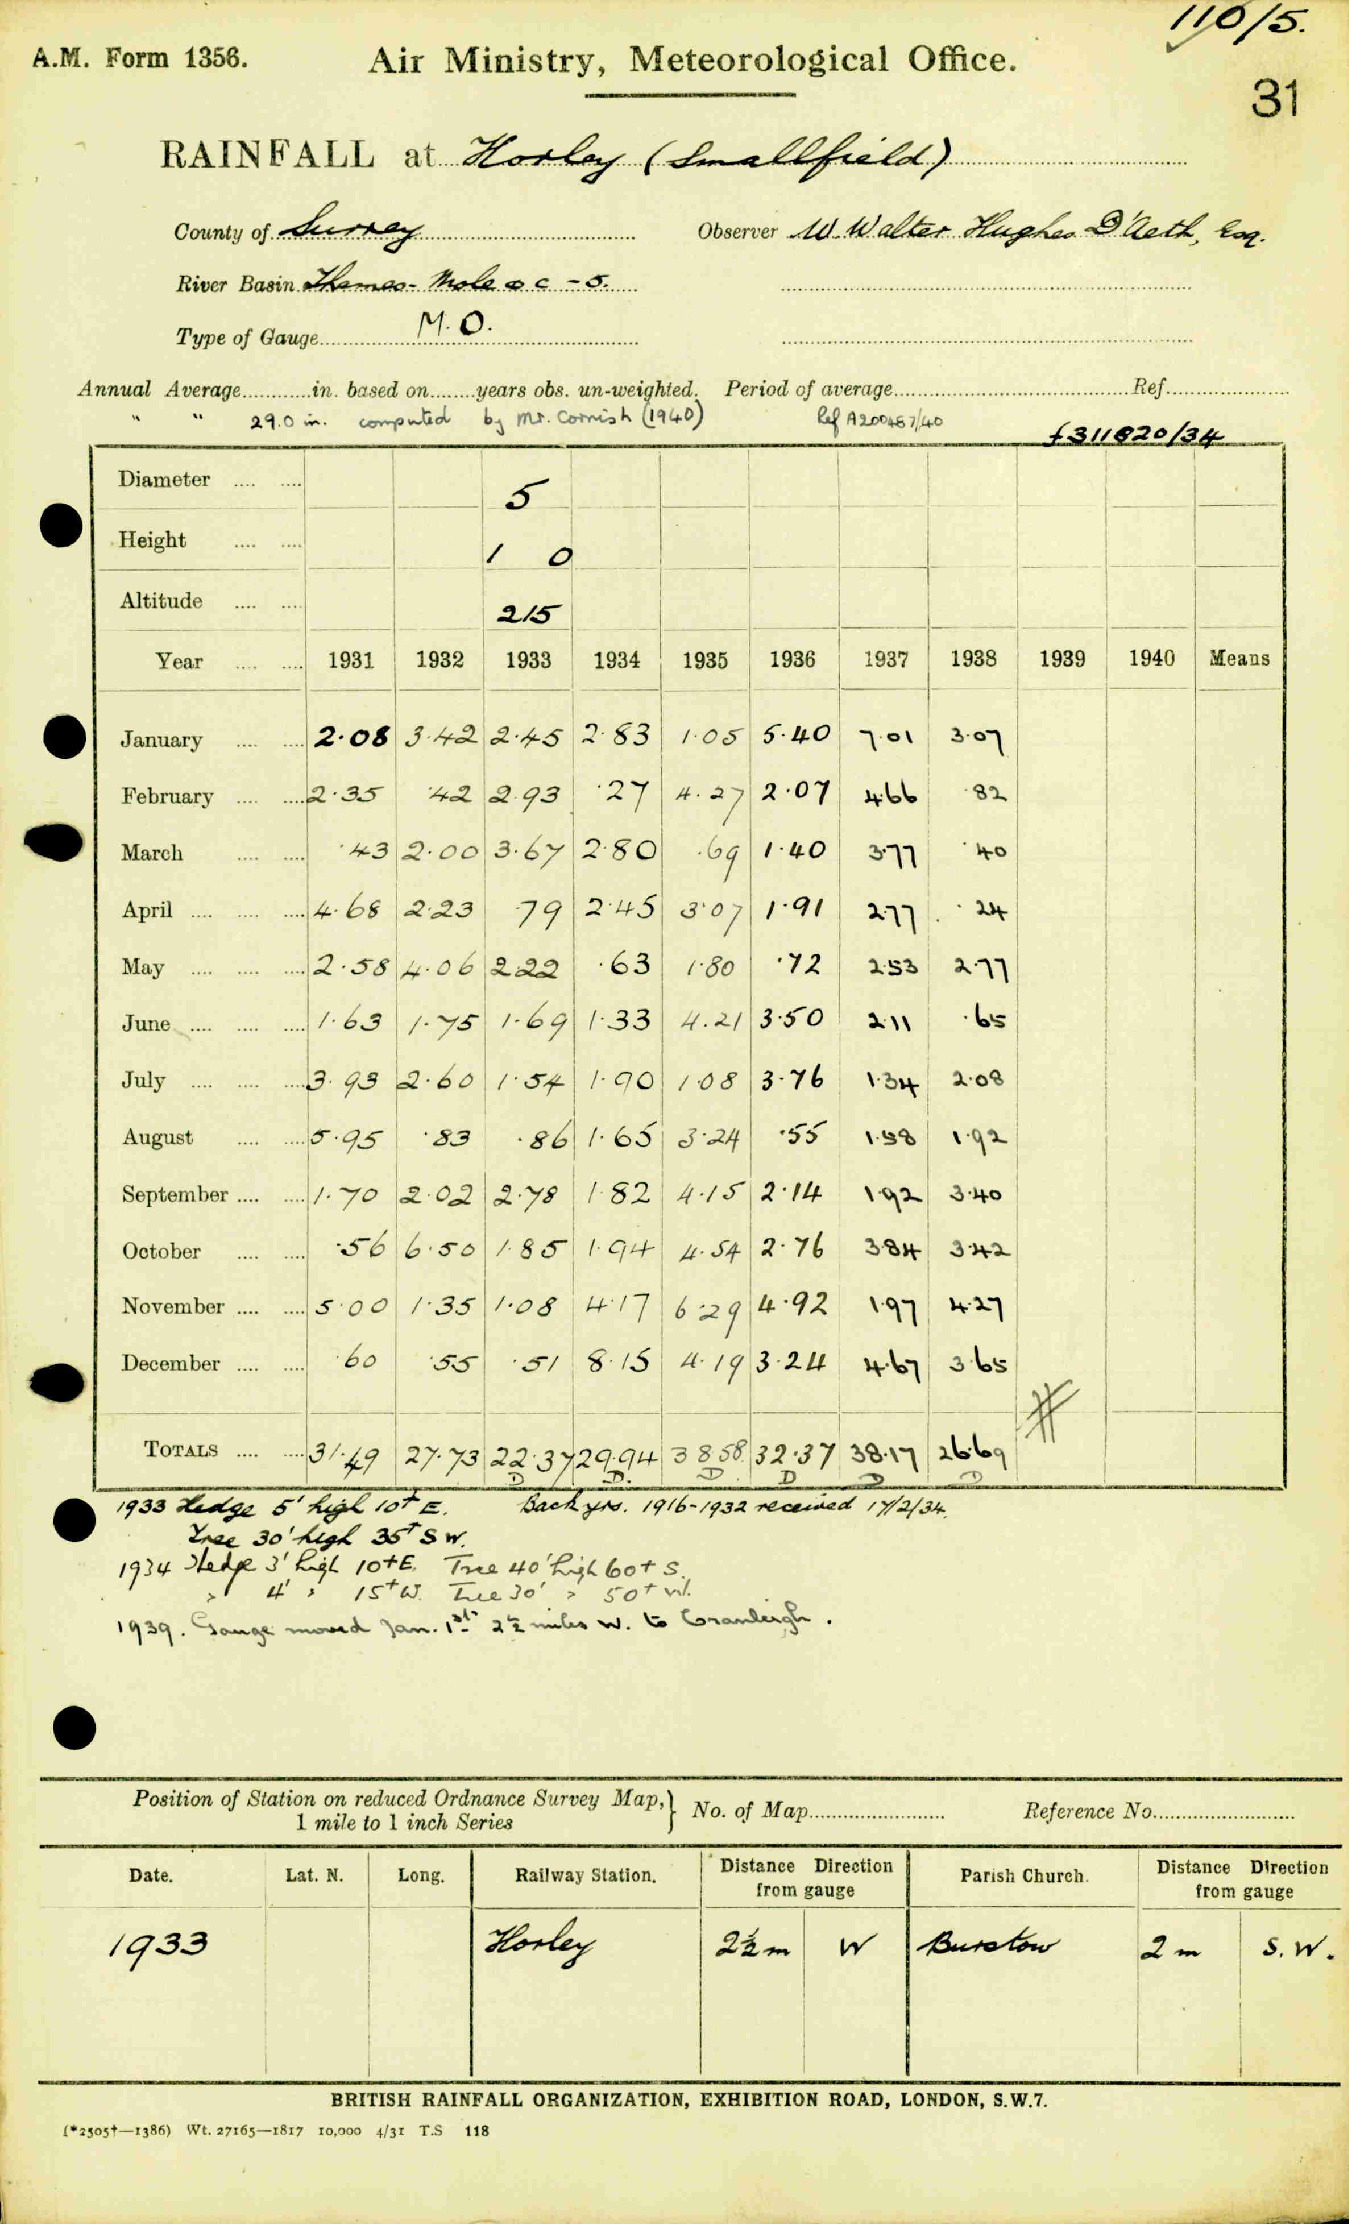 110/5.
A.M. Form 1356.
Air Ministry, Meteorological Office.
31
RAINFALL at Horley (Smallfield)
County of Surrey Observer W. Walter Hughes D'Aeth, Esq.
River Basin Thames - Mole &c - 5.
Type of Gauge M.O.
Annual Average in. based on years obs. un-weighted. Period of average Ref.
" " 29.0 in. computed by Mr. Cornish (1940) Ref A200487/40
f311820/34
Diameter 5
Height 1 0
Altitude 215
Year 1931 1932 1933 1934 1935 1936 1937 1938 1939 1940 Means
January 2.08 3.42 2.45 2.83 1.05 5.40 7.01 3.07
February 2.35 .42 2.93 .27 4.27 2.07 4.66 .82
March .43 2.00 3.67 2.80 .69 1.40 3.77 .40
April 4.68 2.23 .79 2.45 3.07 1.91 2.77 .24
May 2.58 4.06 2.22 .63 1.80 .72 2.53 2.77
June 1.63 1.75 1.69 1.33 4.21 3.50 2.11 .65
July 3.93 2.60 1.54 1.90 1.08 3.76 1.34 2.08
August 5.95 .83 .86 1.65 3.24 .55 1.58 1.92
September 1.70 2.02 2.78 1.82 4.15 2.14 1.92 3.40
October .56 6.50 1.85 1.94 4.54 2.76 3.84 3.42
November 5.00 1.35 1.08 4.17 6.29 4.92 1.97 4.27
December .60 .55 .51 8.15 4.19 3.24 4.67 3.65
TOTALS 31.49 27.73 22.37 29.94 38.58 32.37 38.17 26.69
D D. D D D D
1933 Hedge 5' high 10+ E. Back yrs. 1916-1932 received 17/2/34.
Tree 30' high 35+ S W.
1934 Hedge 3' high 10+ E. Tree 40' high 60+ S.
" 4' " 15+ W. Tree 30' " 50+ W.
1939. Gauge moved Jan. 1st 2½ miles W. to Cranleigh.
Position of Station on reduced Ordnance Survey Map, 1 mile to 1 inch Series } No. of Map Reference No.
Date. Lat. N. Long. Railway Station. Distance Direction from gauge Parish Church. Distance Direction from gauge
1933 Horley 2½ m W Burstow 2 m S.W.
BRITISH RAINFALL ORGANIZATION, EXHIBITION ROAD, LONDON, S.W.7.
(*2505†—1386) Wt. 27165—1817 10,000 4/31 T.S 118